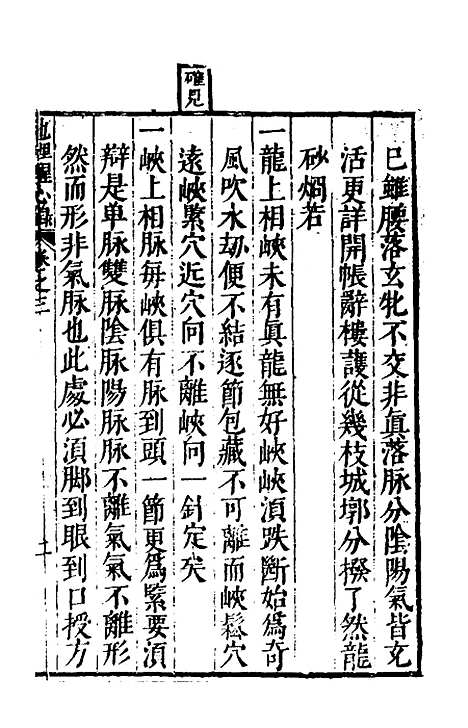 確見
巳雖腰落玄牝不交非眞落脉分隂陽氣皆
活更詳開帳辭樓護從幾枝城墎分撥了然龍
砂燗若
一龍上相峽未有眞龍無好峽峽湏跌斷始爲奇
風吹水刼便不結逐節包藏不可離而峽鬆穴
遠峽緊穴近穴向不離峽向一針定矣
一峽上相脉毎峽俱有脉到頭一節更爲緊要湏
辯是单脉雙脉陰脉陽脉脉不離氣氣不離形
然而形非氣脉也此處必湏脚到眼到口授方
地理醒心錄 卷之三